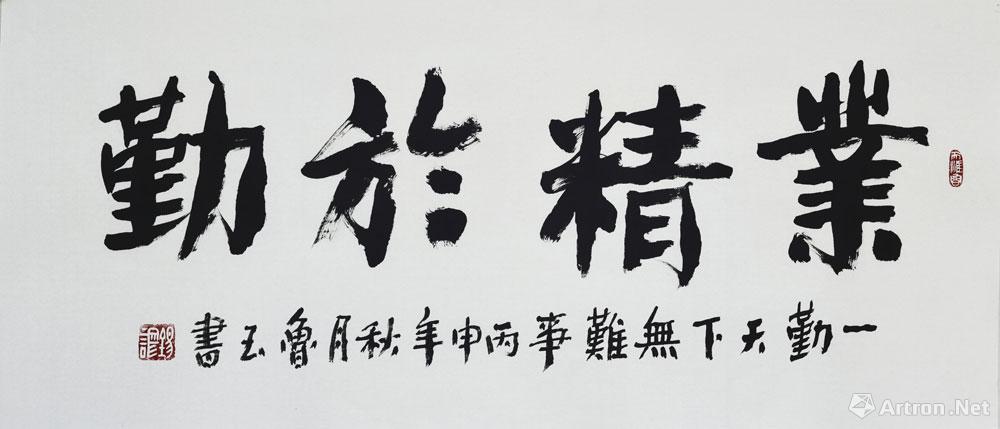 業精於勤
一勤天下無難事丙申年秋月魯玉書
Artron.Net